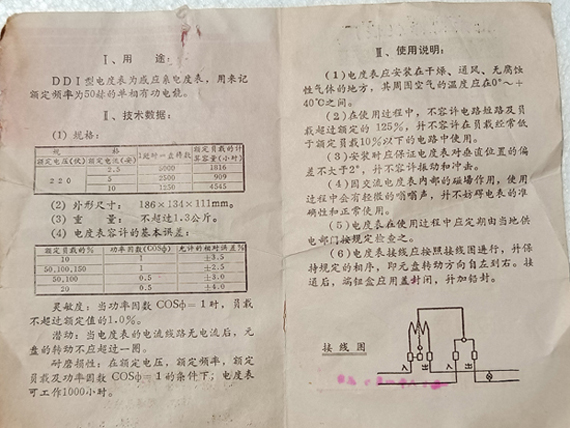 Ⅰ、用 途:
DD1型电度表为感应系电度表，用来记
额定频率为50赫的单相有功电能。
Ⅱ、技术数据:
(1) 规格:
规 格
额定电压(伏) 额定电流(安) 额定负载的计
算容量(小时)
220
2.5 5000 1816
5 2500 909
10 1250 4545
(2) 外形尺寸: 186×134×111mm。
(3) 重 量: 不超过1.3公斤。
(4) 电度表容许的基本误差:
额定负载的% 功率因数(COSφ) 允许的相对误差%
10 1 ±3.5
50,100,150 1 ±2.5
50,100 0.5 ±3.0
20 0.5 ±4.0
灵敏度: 当功率因数 COSφ=1时，负载
不超过额定值的1.0%。
潜动: 当电度表的电流线路无电流后，元
盘的转动不应超过一圈。
耐磨损性: 在额定电压，额定频率，额定
负载及功率因数 COSφ=1的条件下; 电度表
可工作1000小时。
Ⅲ、使用说明:
(1) 电度表应安装在干燥、通风、无腐蚀
性气体的地方，其周围空气的温度应在0°～+
40°C之间。
(2) 在使用过程中，不容许电路短路及负
载超过额定的 125%，并不容许在负载经常低
于额定负载10%以下的电路中使用。
(3) 安装时应保证电度表对垂直位置的偏
差不大于2°，并不容许振动和冲击。
(4) 因交流电度表内部的磁场作用，使用
过程中会有轻微的嗡嗡声，并不妨碍电表的准
确性和正常使用。
(5) 电度表在使用过程中应定期由当地供
电部门按规定检查之。
(6) 电度表接线应按照接线图进行，并保
持规定的相序，即元盘转动方向自左到右。接
通后，端钮盒应用盖封闭，并加铅封。
接线图
入 出 入 出